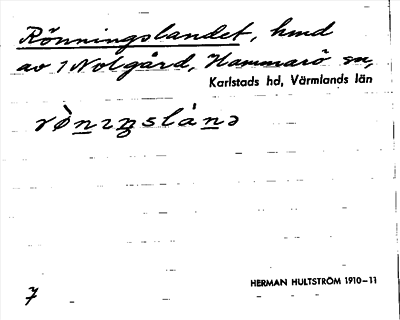 Rönningslandet, hmd
av 1 Nolgård, Hammarö sn,
Karlstads hd, Värmlands län
rö̀nɪŋslànə
7
HERMAN HULTSTRÖM 1910–11